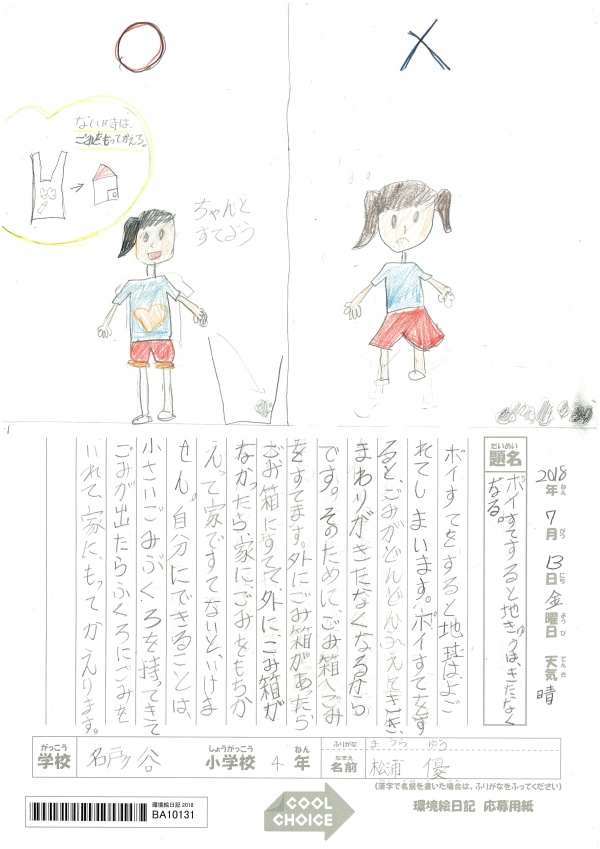 ないときは、
ごみをもってかえろ。
ちゃんと
すてよう
2018年ねん 7月がつ 13日にち 金曜日ようび 天気てんき 晴
題名だいめい
ポイすてすると地きゅうは、きたなく
なる。
ポイすてをすると地球はよご
れてしまいます。ポイすてをす
ると、ごみがどんどんふえてきて、
まわりがきたなくなるから
です。そのために、ごみ箱へごみ
をすてます。外にごみ箱があったら
ごみ箱にすてて、外に、ごみ箱が
なかったら、家にごみをもちか
えって家ですてないといけま
せん。自分にできることは、
小さいごみぶくろを持ってきて
ごみが出たらふくろにごみを
いれて、家に、もってかえります。
がっこう 学校 名戸ヶ谷 しょうがっこう 小学校 4 ねん 年
ふりがな まつうら ゆう
なまえ 名前 松浦 優
(漢字で名前を書いた場合は、ふりがなをふってください)
環境絵日記 2018
BA10131
COOL
CHOICE
環境絵日記 応募用紙